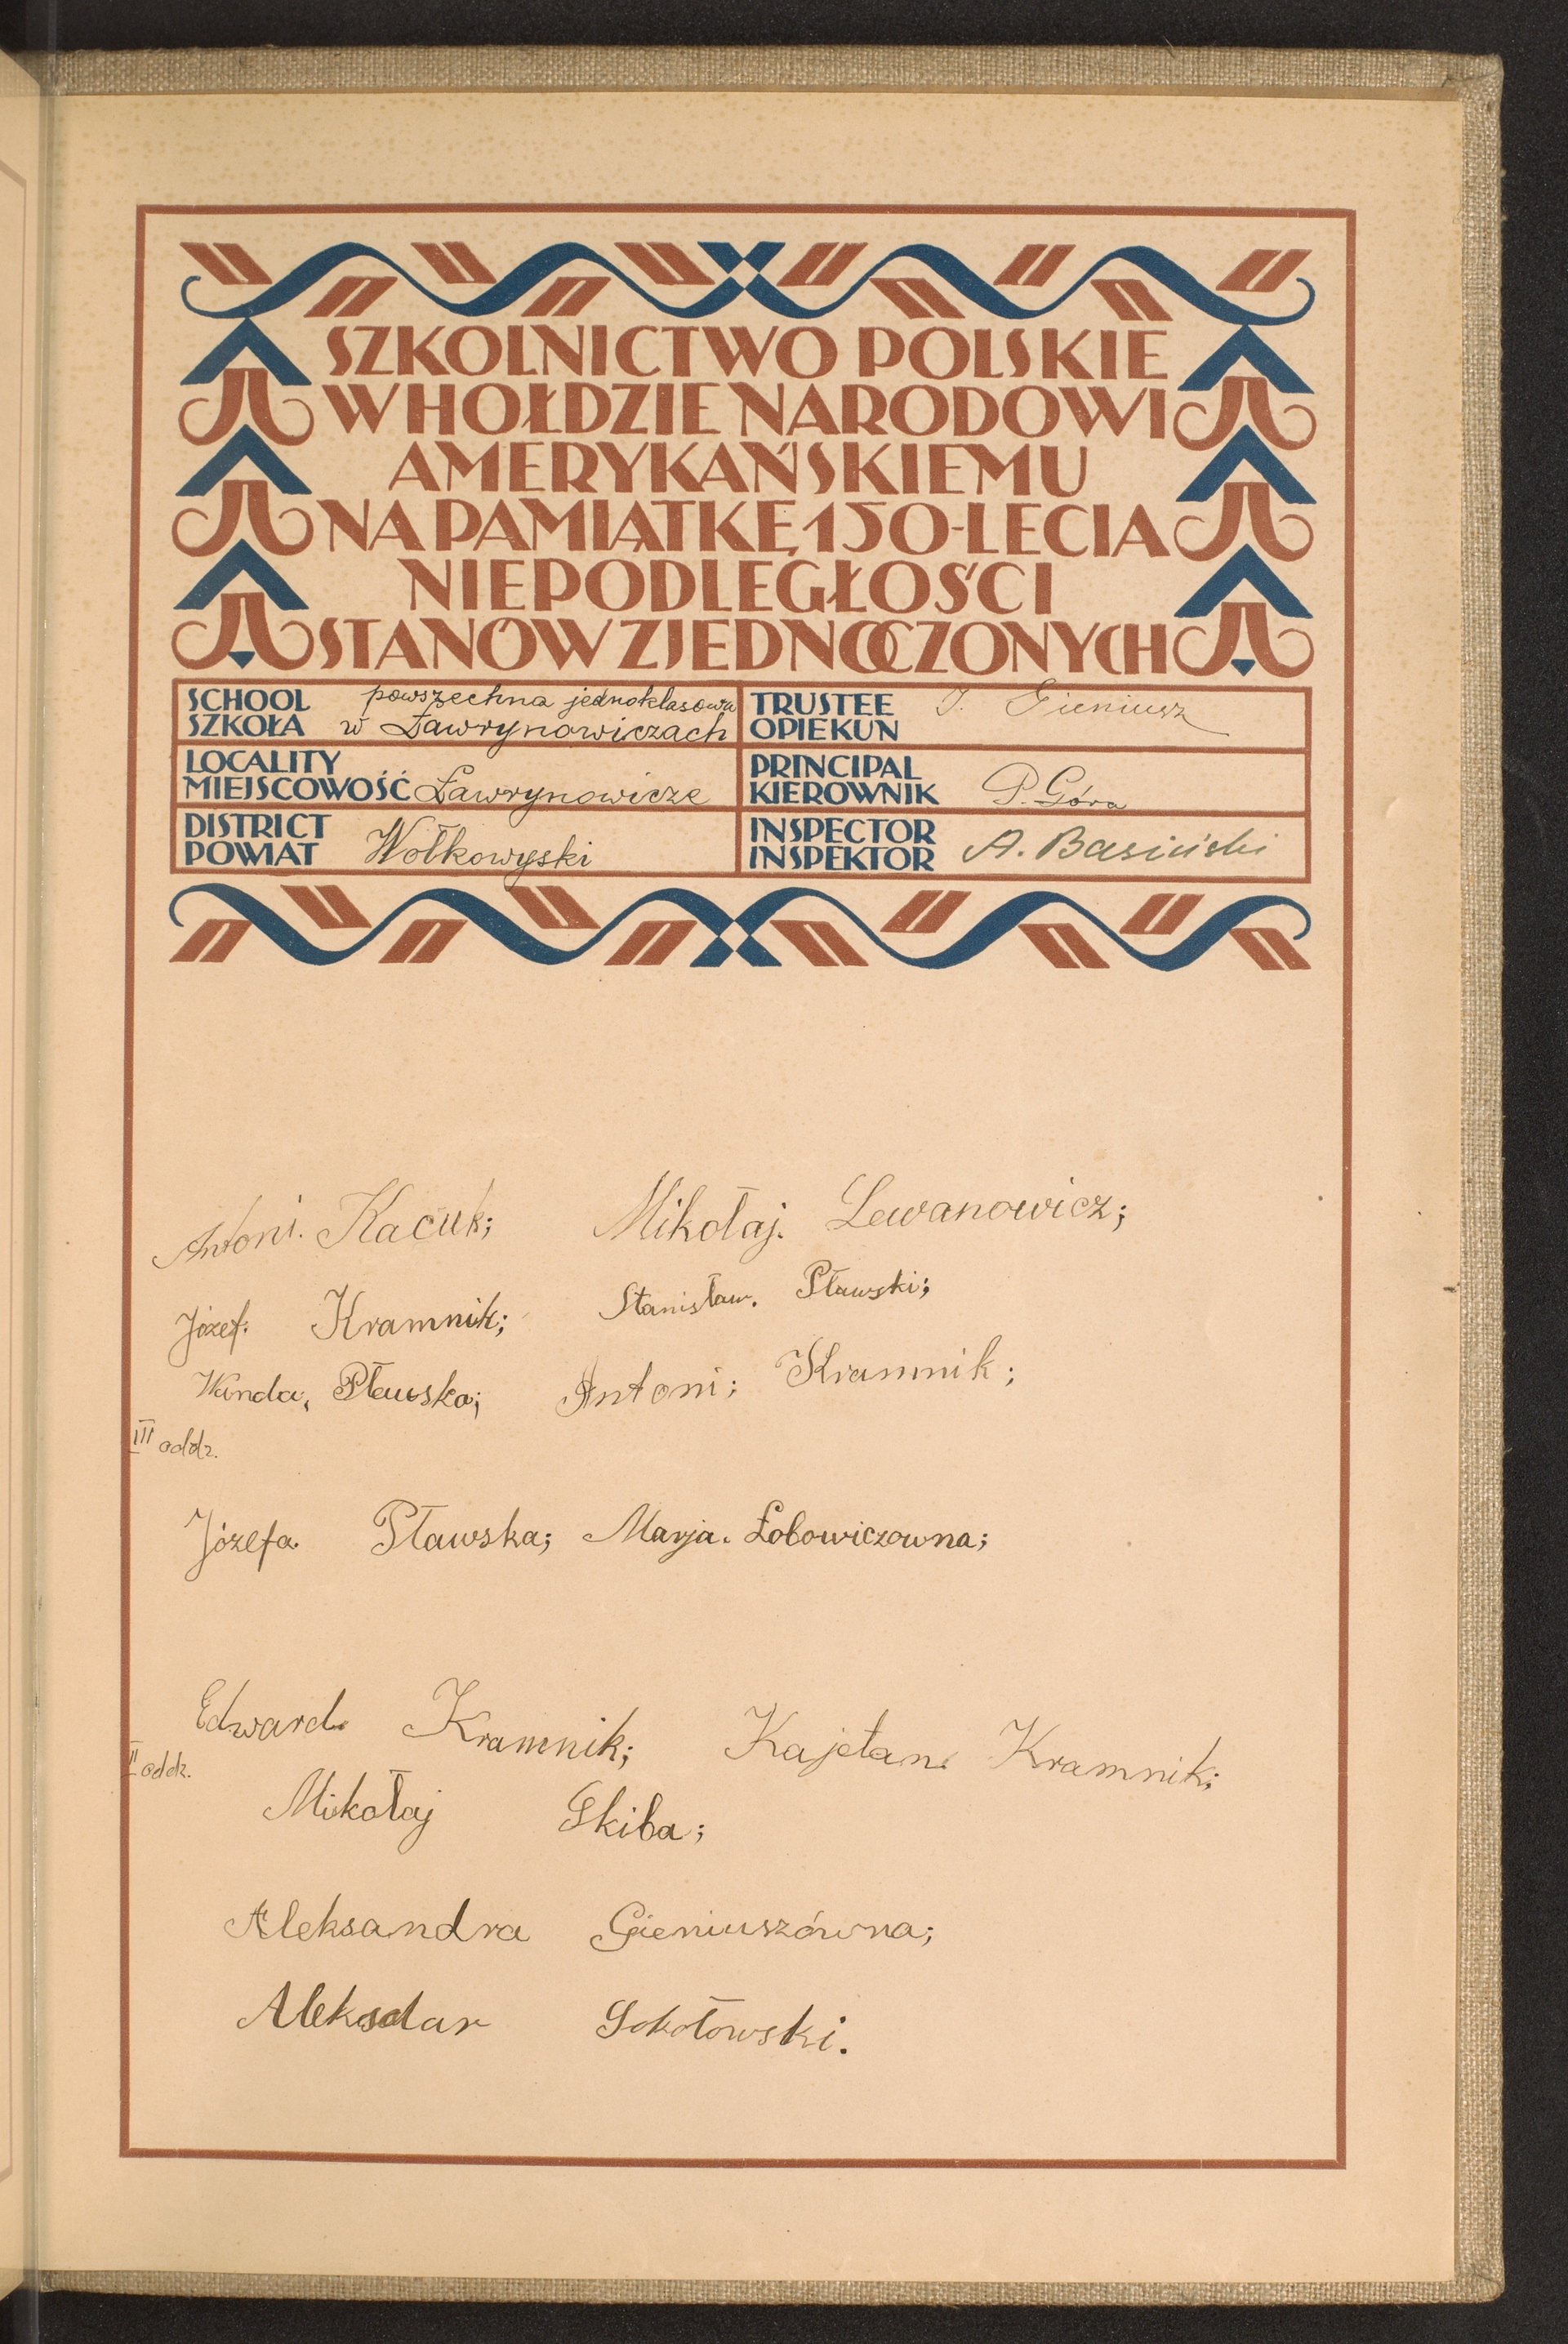 SZKOLNICTWO POLSKIE
W HOŁDZIE NARODOWI
AMERYKAŃSKIEMU
NA PAMIĄTKĘ 150-LECIA
NIEPODLEGŁOŚCI
STANÓW ZJEDNOCZONYCH
SCHOOL
SZKOŁA
powszechna jednoklasowa
w Ławrynowiczach
TRUSTEE
OPIEKUN
J. Gieniusz
LOCALITY
MIEJSCOWOŚĆ Ławrynowicze
PRINCIPAL
KIEROWNIK P. Góra
DISTRICT
POWIAT Wołkowyski
INSPECTOR
INSPEKTOR A. Basiński
Antoni. Kacuk; Mikołaj. Lewanowicz;
Józef. Kramnik; Stanisław. Pławski;
Wanda, Pławska; Antoni; Kramnik;
III oddz.
Józefa. Pławska; Marja. Łobowiczowna;
Edward. Kramnik; Kajetan. Kramnik;
II oddz.
Mikołaj Skiba;
Aleksandra Gieniuszówna;
Aleksdar Sokołowski.